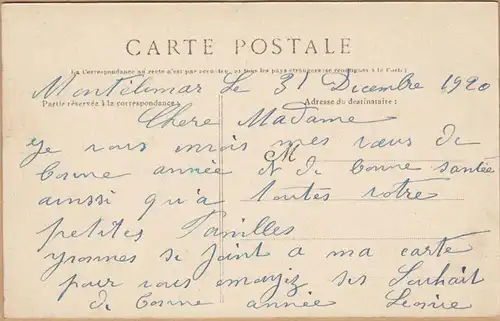 CARTE POSTALE
La Correspondance au recto n'est pas acceptée par tous les pays étrangers (se renseigner à la Poste)
Montélimar Le 31 Decembre 1920
Partie réservée à la correspondance. Adresse du destinataire :
Chere Madame
Je vous envois mes vœux de
M
bonne année N de bonne santée
ainssi qu'a toutes votre
petites familles
yvonnes se joint a ma carte
pour vous envoyiz ses Souhait
de bonne année Leonie